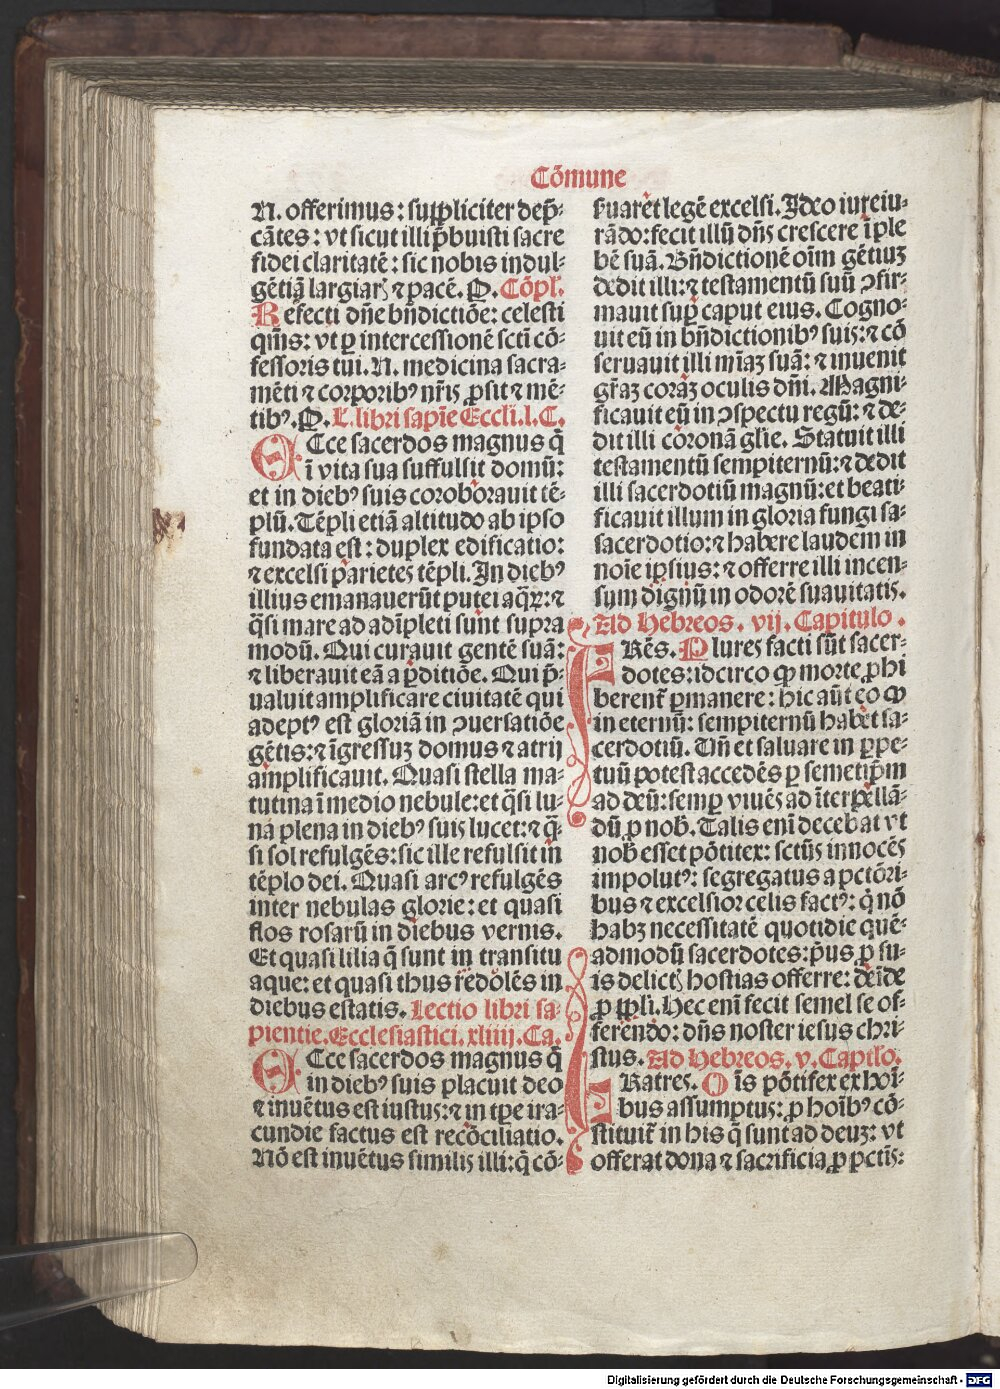 Cōmune
N. offerimus: suppliciter dep̄-
cātes: vt sicut illi p̄buisti sacre
fidei claritatē: sic nobis indul-
gētiā largiaꝝ ⁊ pacē. P. Cōpl.
Refecti dn̄e bn̄dictiōe: celesti
qm̄s: vt ꝑ intercessionē scti cō-
fessoris tui. N. medicina sacra-
mēti ⁊ corporibꝰ nr̄is ꝓsit ⁊ mē-
tibꝰ. P. L. libri sapīe Eccli. l. C.
ECce sacerdos magnus q̄
ī vita sua suffulsit domū:
et in diebꝰ suis coroborauit tē-
plū. Tēpli etiā altitudo ab ipso
fundata est: duplex edificatio:
⁊ excelsi parietes tēpli. In diebꝰ
illius emanauerūt putei aq̄ꝝ: ⁊
q̄si mare ad adīpleti sunt supra
modū. Qui curauit gentē suā:
⁊ liberauit eā a ꝑditiōe. Qui p̄-
ualuit amplificare ciuitatē qui
adeptꝰ est gloriā in ꝯuersatiōe
gētis: ⁊ īgressuꝫ domus ⁊ atrij
amplificauit. Quasi stella ma-
tutina ī medio nebule: et q̄si lu-
na plena in diebꝰ suis lucet: ⁊ q̄-
si sol refulgēs: sic ille refulsit in
tēplo dei. Quasi arcꝰ refulgēs
inter nebulas glorie: et quasi
flos rosarū in diebus vernis.
Et quasi lilia q̄ sunt in transitu
aque: et quasi thus redolēs in
diebus estatis. Lectio libri sa-
pientie. Ecclesiastici. xliiij. Ca.
ECce sacerdos magnus q̄
in diebꝰ suis placuit deo
⁊ inuētus est iustus: ⁊ in tꝑe ira-
cundie factus est recōciliatio.
Nō est inuētus similis illi: q̄ cō-
suaret legē excelsi. Ideo iureiu-
rādo: fecit illū dn̄s crescere ī ple
bē suā. Bn̄dictionē oīm gētiuꝫ
dedit illi: ⁊ testamentū suū ꝯfir-
mauit suꝑ caput eius. Cogno-
uit eū in bn̄dictionibꝰ suis: ⁊ cō
seruauit illi mīaꝫ suā: ⁊ inuenit
gr̄aꝫ coraꝫ oculis dn̄i. Magni-
ficauit eū in ꝯspectu regū: ⁊ de-
dit illi coronā glīe. Statuit illi
testamentū sempiternū: ⁊ dedit
illi sacerdotiū magnū: et beati-
ficauit illum in gloria fungi sa-
sacerdotio: ⁊ habere laudem in
noīe ipsius: ⁊ offerre illi incen-
sum dignū in odorē suauitatis.
Ad Hebreos. vij. Capitulo.
FRēs. Plures facti sūt sacer-
dotes: idcirco ꝙ morte ꝓhi
berent̄ ꝑmanere: hic aūt eo ꝙ
in eternū: sempiternū habet sa-
cerdotiū. Vn̄ et saluare in ꝑpe-
tuū potest accedēs ꝑ semetip̄m
ad deū: semꝑ viuēs ad īterpellā-
dū ꝓ nob̄. Talis enī decebat vt
nob̄ esset pōtifex: sctūs innocēs
impolutꝰ: segregatus a pctōri-
bus ⁊ excelsior celis factꝰ: q̄ nō
habꝫ necessitatē quotidie quē-
admodū sacerdotes: p̄us ꝓ su-
is delictꝭ hostias offerre: deīde
ꝓ ppl̄i. Hec enī fecit semel se of-
ferendo: dn̄s noster iesus chri-
stus. Ad Hebreos. v. Captl̄o.
FRatres. Oīs pōtifex ex hoī-
bus assumptus: ꝓ hoībꝰ cō-
stituit̄ in his q̄ sunt ad deuꝫ: vt
offerat dona ⁊ sacrificia ꝓ pctīs:
Digitalisierung gefördert durch die Deutsche Forschungsgemeinschaft - DFG